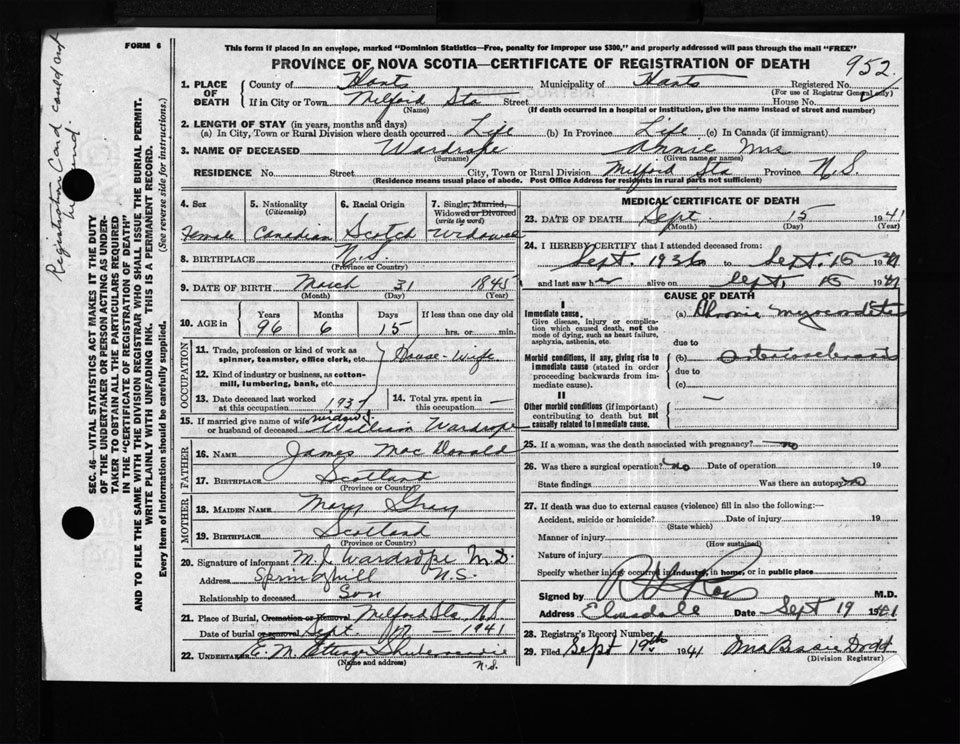 Registration Card could not
be found
FORM 6
This form if placed in an envelope, marked "Dominion Statistics—Free, penalty for improper use $300," and properly addressed will pass through the mail "FREE"
PROVINCE OF NOVA SCOTIA—CERTIFICATE OF REGISTRATION OF DEATH
952
SEC. 46—VITAL STATISTICS ACT MAKES IT THE DUTY
OF THE UNDERTAKER OR PERSON ACTING AS UNDER-
TAKER TO OBTAIN ALL THE PARTICULARS REQUIRED
IN THE "CERTIFICATE OF REGISTRATION OF DEATH"
AND TO FILE THE SAME WITH THE DIVISION REGISTRAR WHO SHALL ISSUE THE BURIAL PERMIT.
WRITE PLAINLY WITH UNFADING INK. THIS IS A PERMANENT RECORD.
Every item of information should be carefully supplied. (See reverse side for instructions.)
1. PLACE OF DEATH County of Hants Municipality of Hants Registered No.
(For use of Registrar General only)
If in City or Town Milford Sta Street House No.
(Name) (If death occurred in a hospital or institution, give the name instead of street and number)
2. LENGTH OF STAY (in years, months and days)
(a) In City, Town or Rural Division where death occurred Life (b) In Province Life (c) In Canada (if immigrant)
3. NAME OF DECEASED Wardrope Annie Mrs
(Surname) (Given name or names)
RESIDENCE No. Street City, Town or Rural Division Milford Sta Province N.S.
(Residence means usual place of abode. Post Office Address for residents in rural parts not sufficient)
4. Sex Female
5. Nationality (Citizenship) Canadian
6. Racial Origin Scotch
7. Single, Married, Widowed or Divorced (write the word) Widowed
8. BIRTHPLACE N.S.
(Province or Country)
9. DATE OF BIRTH March 31 1845
(Month) (Day) (Year)
10. AGE in Years Months Days If less than one day old
96 6 15 hrs. or min.
OCCUPATION
11. Trade, profession or kind of work as spinner, teamster, office clerk, etc. House-Wife
12. Kind of industry or business, as cotton-mill, lumbering, bank, etc.
13. Date deceased last worked at this occupation 1937
14. Total yrs. spent in this occupation —
15. If married give name of wife or husband of deceased widow of William Wardrope
FATHER
16. NAME James MacDonald
17. BIRTHPLACE Scotland
(Province or Country)
MOTHER
18. MAIDEN NAME Mary Gray
19. BIRTHPLACE Scotland
(Province or Country)
20. Signature of informant M. J. Wardrope M.D.
Address Springhill N.S.
Relationship to deceased Son
21. Place of Burial, Cremation or Removal Milford Sta N.S.
Date of burial or removal Sept. 17 — 1941
22. UNDERTAKER E. M. Shubenacadie
(Name and address) N.S.
MEDICAL CERTIFICATE OF DEATH
23. DATE OF DEATH Sept. 15 1941
(Month) (Day) (Year)
24. I HEREBY CERTIFY that I attended deceased from:
Sept. 1936 to Sept. 15 1941
and last saw her alive on Sept. 15 1941
CAUSE OF DEATH
I
Immediate cause.
Give disease, injury or complication which caused death, not the mode of dying, such as heart failure, asphyxia, asthenia, etc.
(a) Chronic myocarditis
due to
Morbid conditions, if any, giving rise to immediate cause (stated in order proceeding backwards from immediate cause).
(b) Arteriosclerosis
due to
(c)
II
Other morbid conditions (if important) contributing to death but not causally related to immediate cause. —
25. If a woman, was the death associated with pregnancy? no
26. Was there a surgical operation? no Date of operation 19
State findings Was there an autopsy no
27. If death was due to external causes (violence) fill in also the following:—
Accident, suicide or homicide? Date of injury 19
(State which)
Manner of injury
(How sustained)
Nature of injury
Specify whether injury occurred in industry, in home, or in public place
Signed by M.D.
Address Elmsdale Date Sept 19 1941
28. Registrar's Record Number
29. Filed Sept 19th 1941 Mrs Bessie Dodd
(Division Registrar)